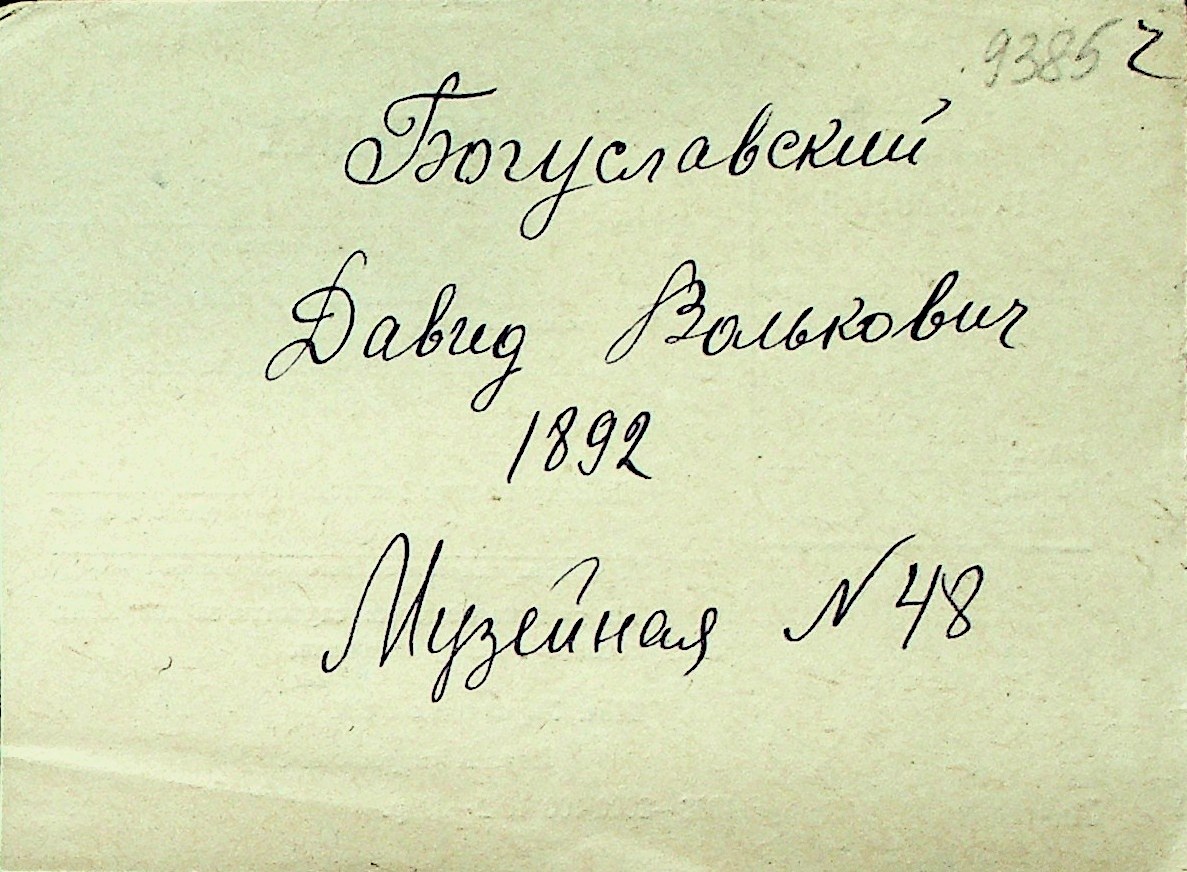 9385 ч
Богуславский
Давид Волькович
1892
Музейная N 48